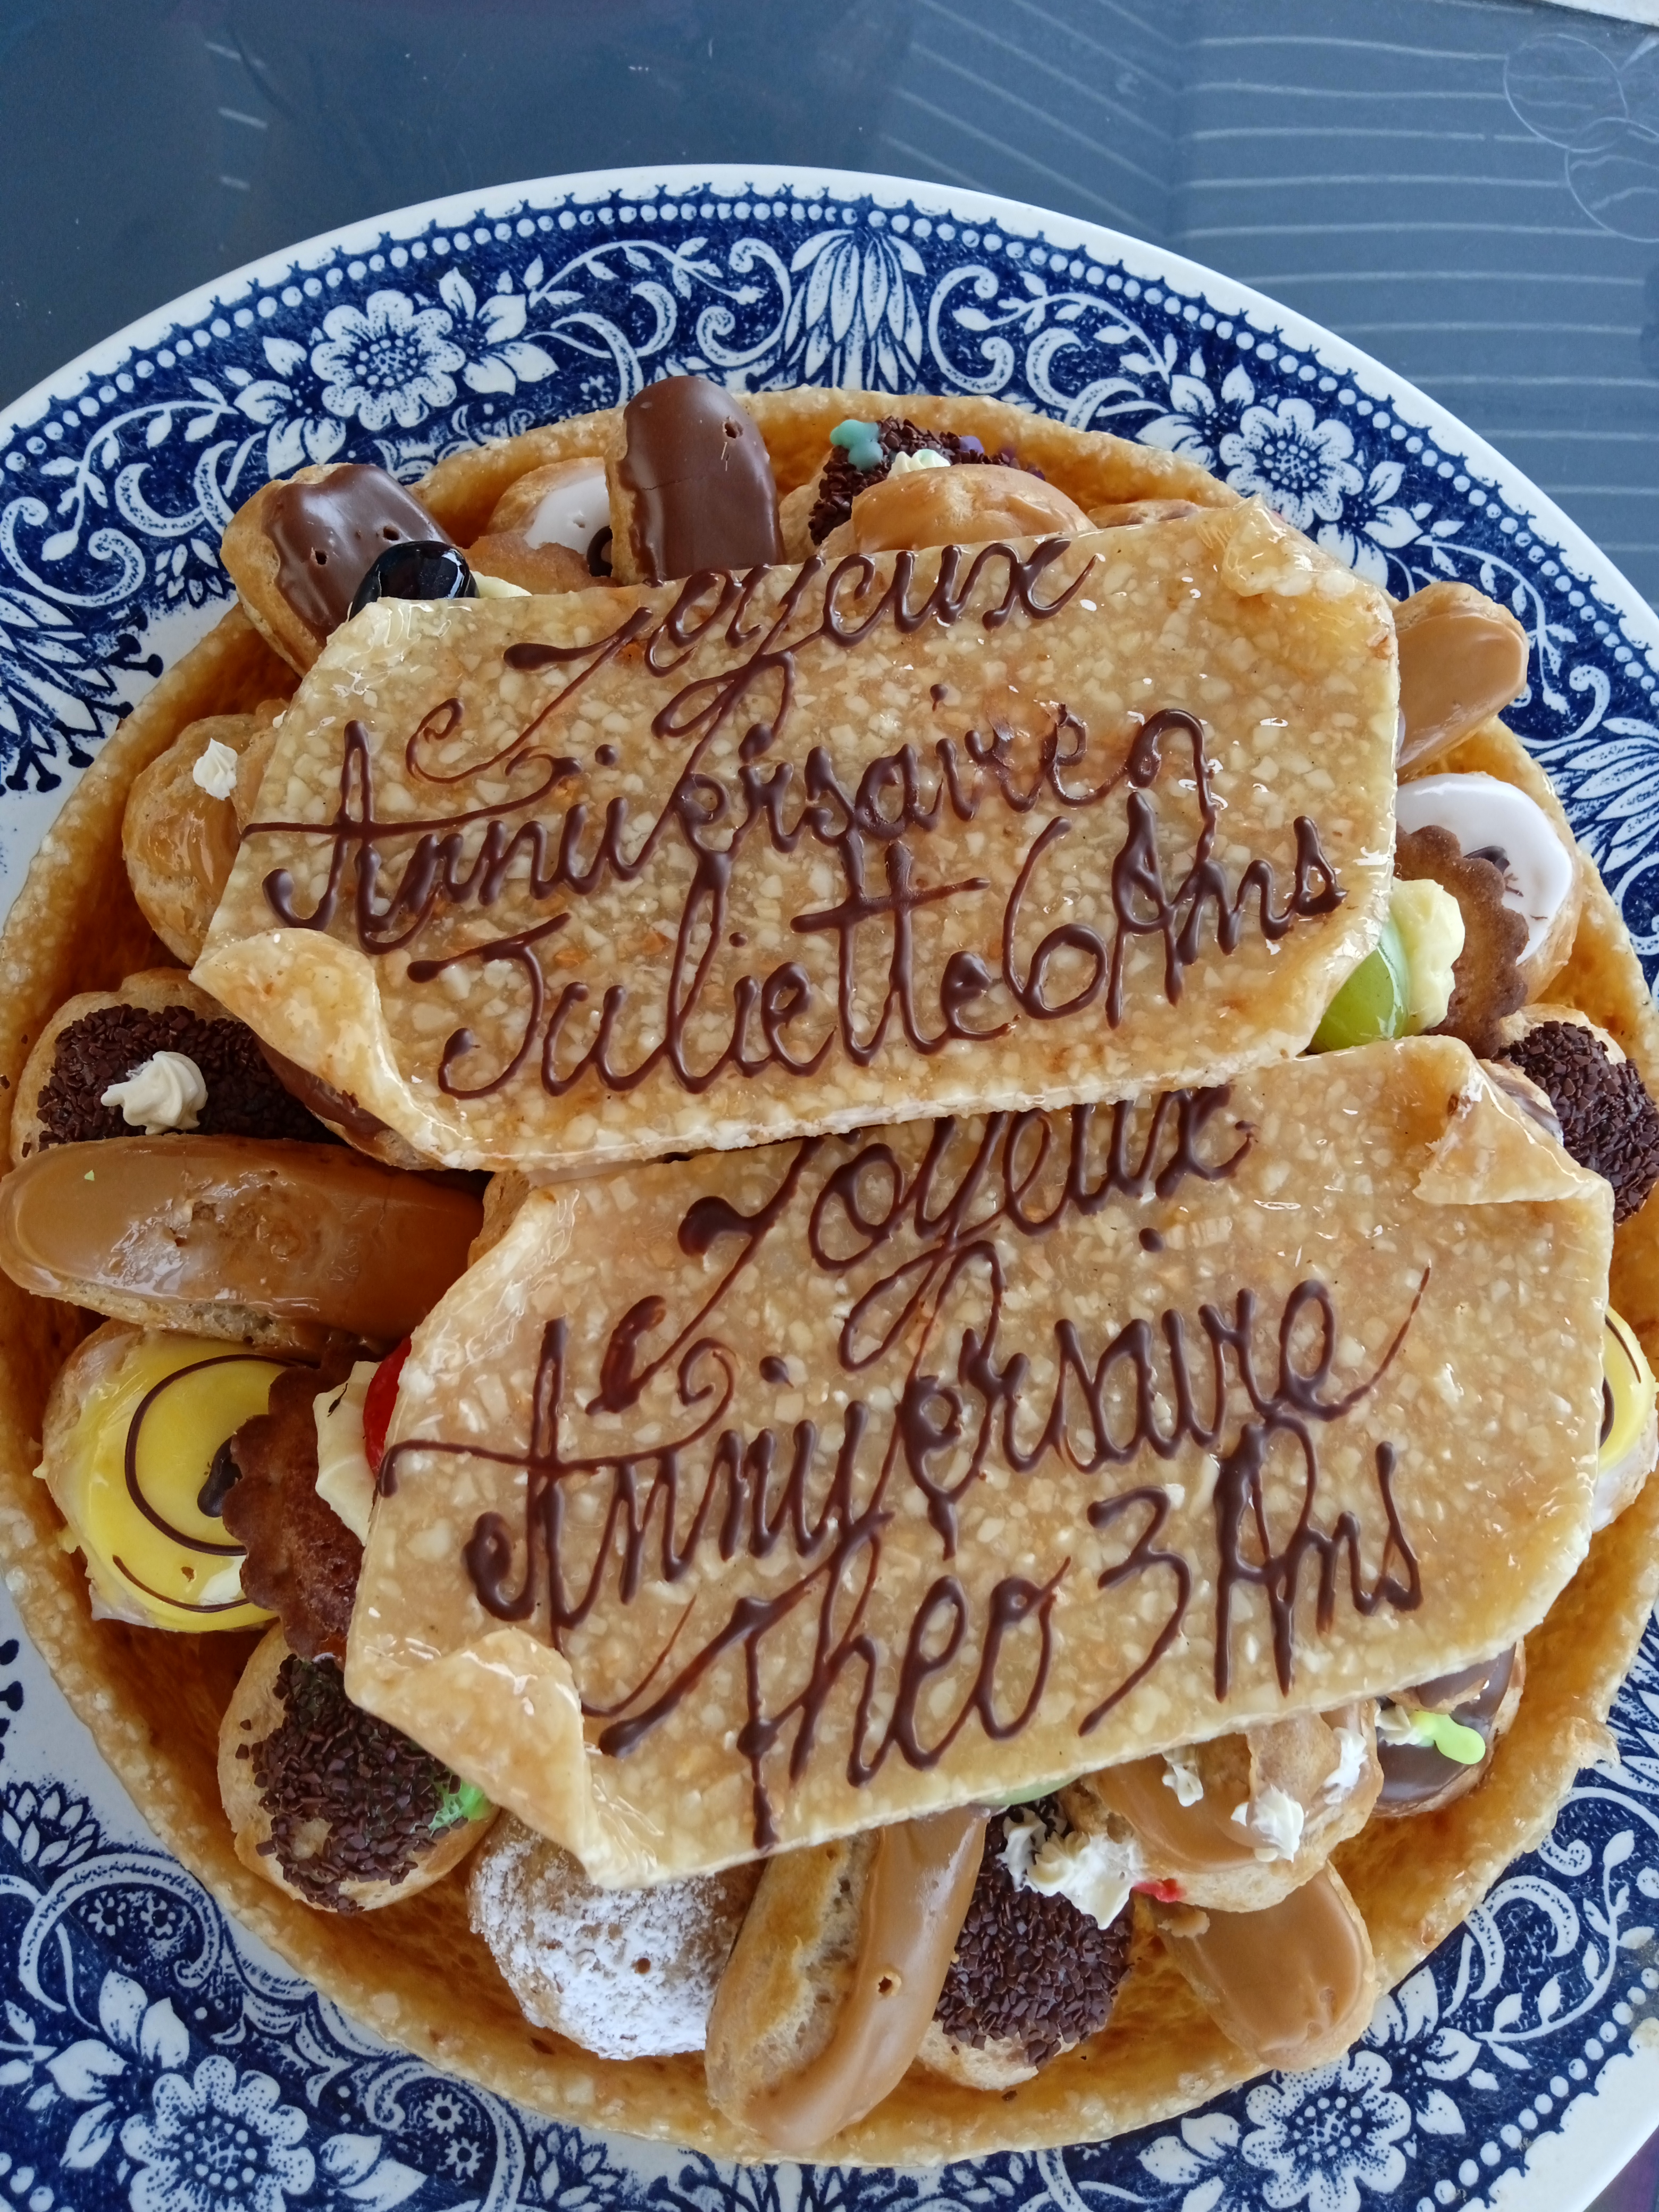 Joyeux
Anniversaire
Juliette 6 Ans
Joyeux
Anniversaire
Theo 3 Ans